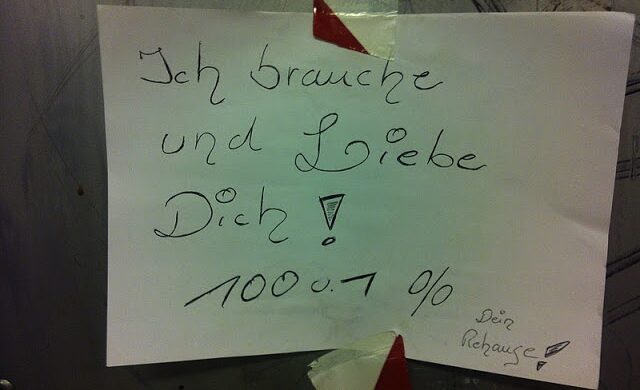 Ich brauche
und Liebe
Dich!
100 u. 1 %
Dein
Rehauge!